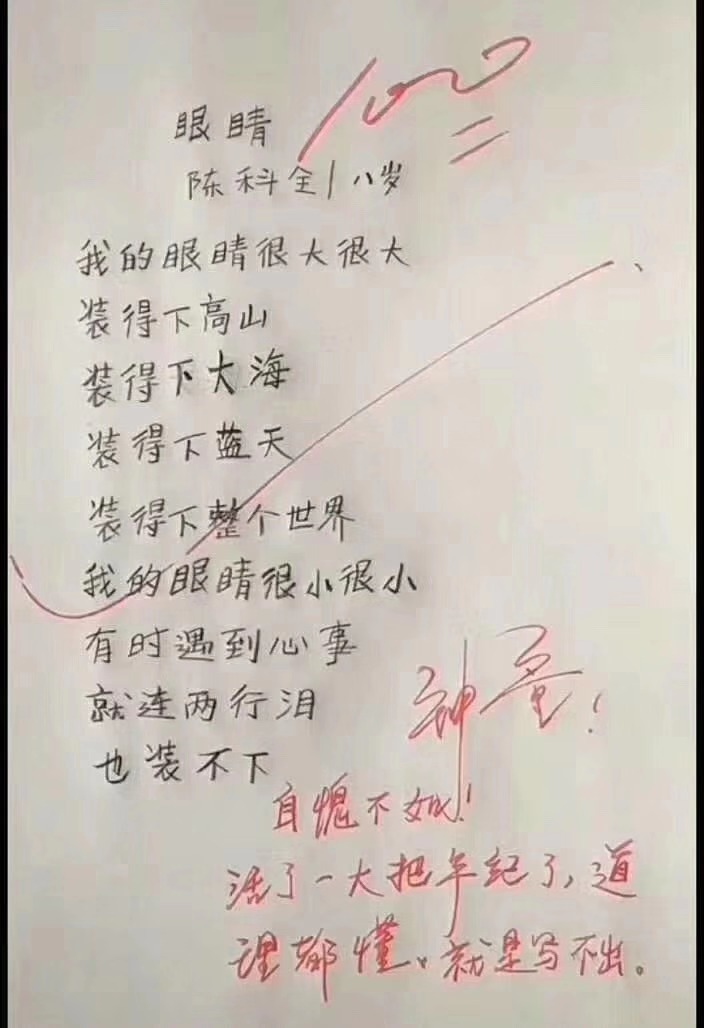 眼睛
100
陈科全|八岁
我的眼睛很大很大
装得下高山
装得下大海
装得下蓝天
装得下整个世界
我的眼睛很小很小
有时遇到心事
就连两行泪
也装不下
神童!
自愧不如!
活了一大把年纪了,道
理都懂。就是写不出。